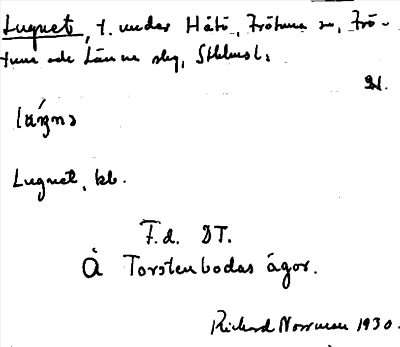 Lugnet, t. under Håtö, Frötuna sn, Frö-
tuna och Länna skg, Sthlmsl.
lúŋnə
Lugnet, kb.
F.d. DT.
Å Torstenbodas ägor.
Richard Norrman 1930.